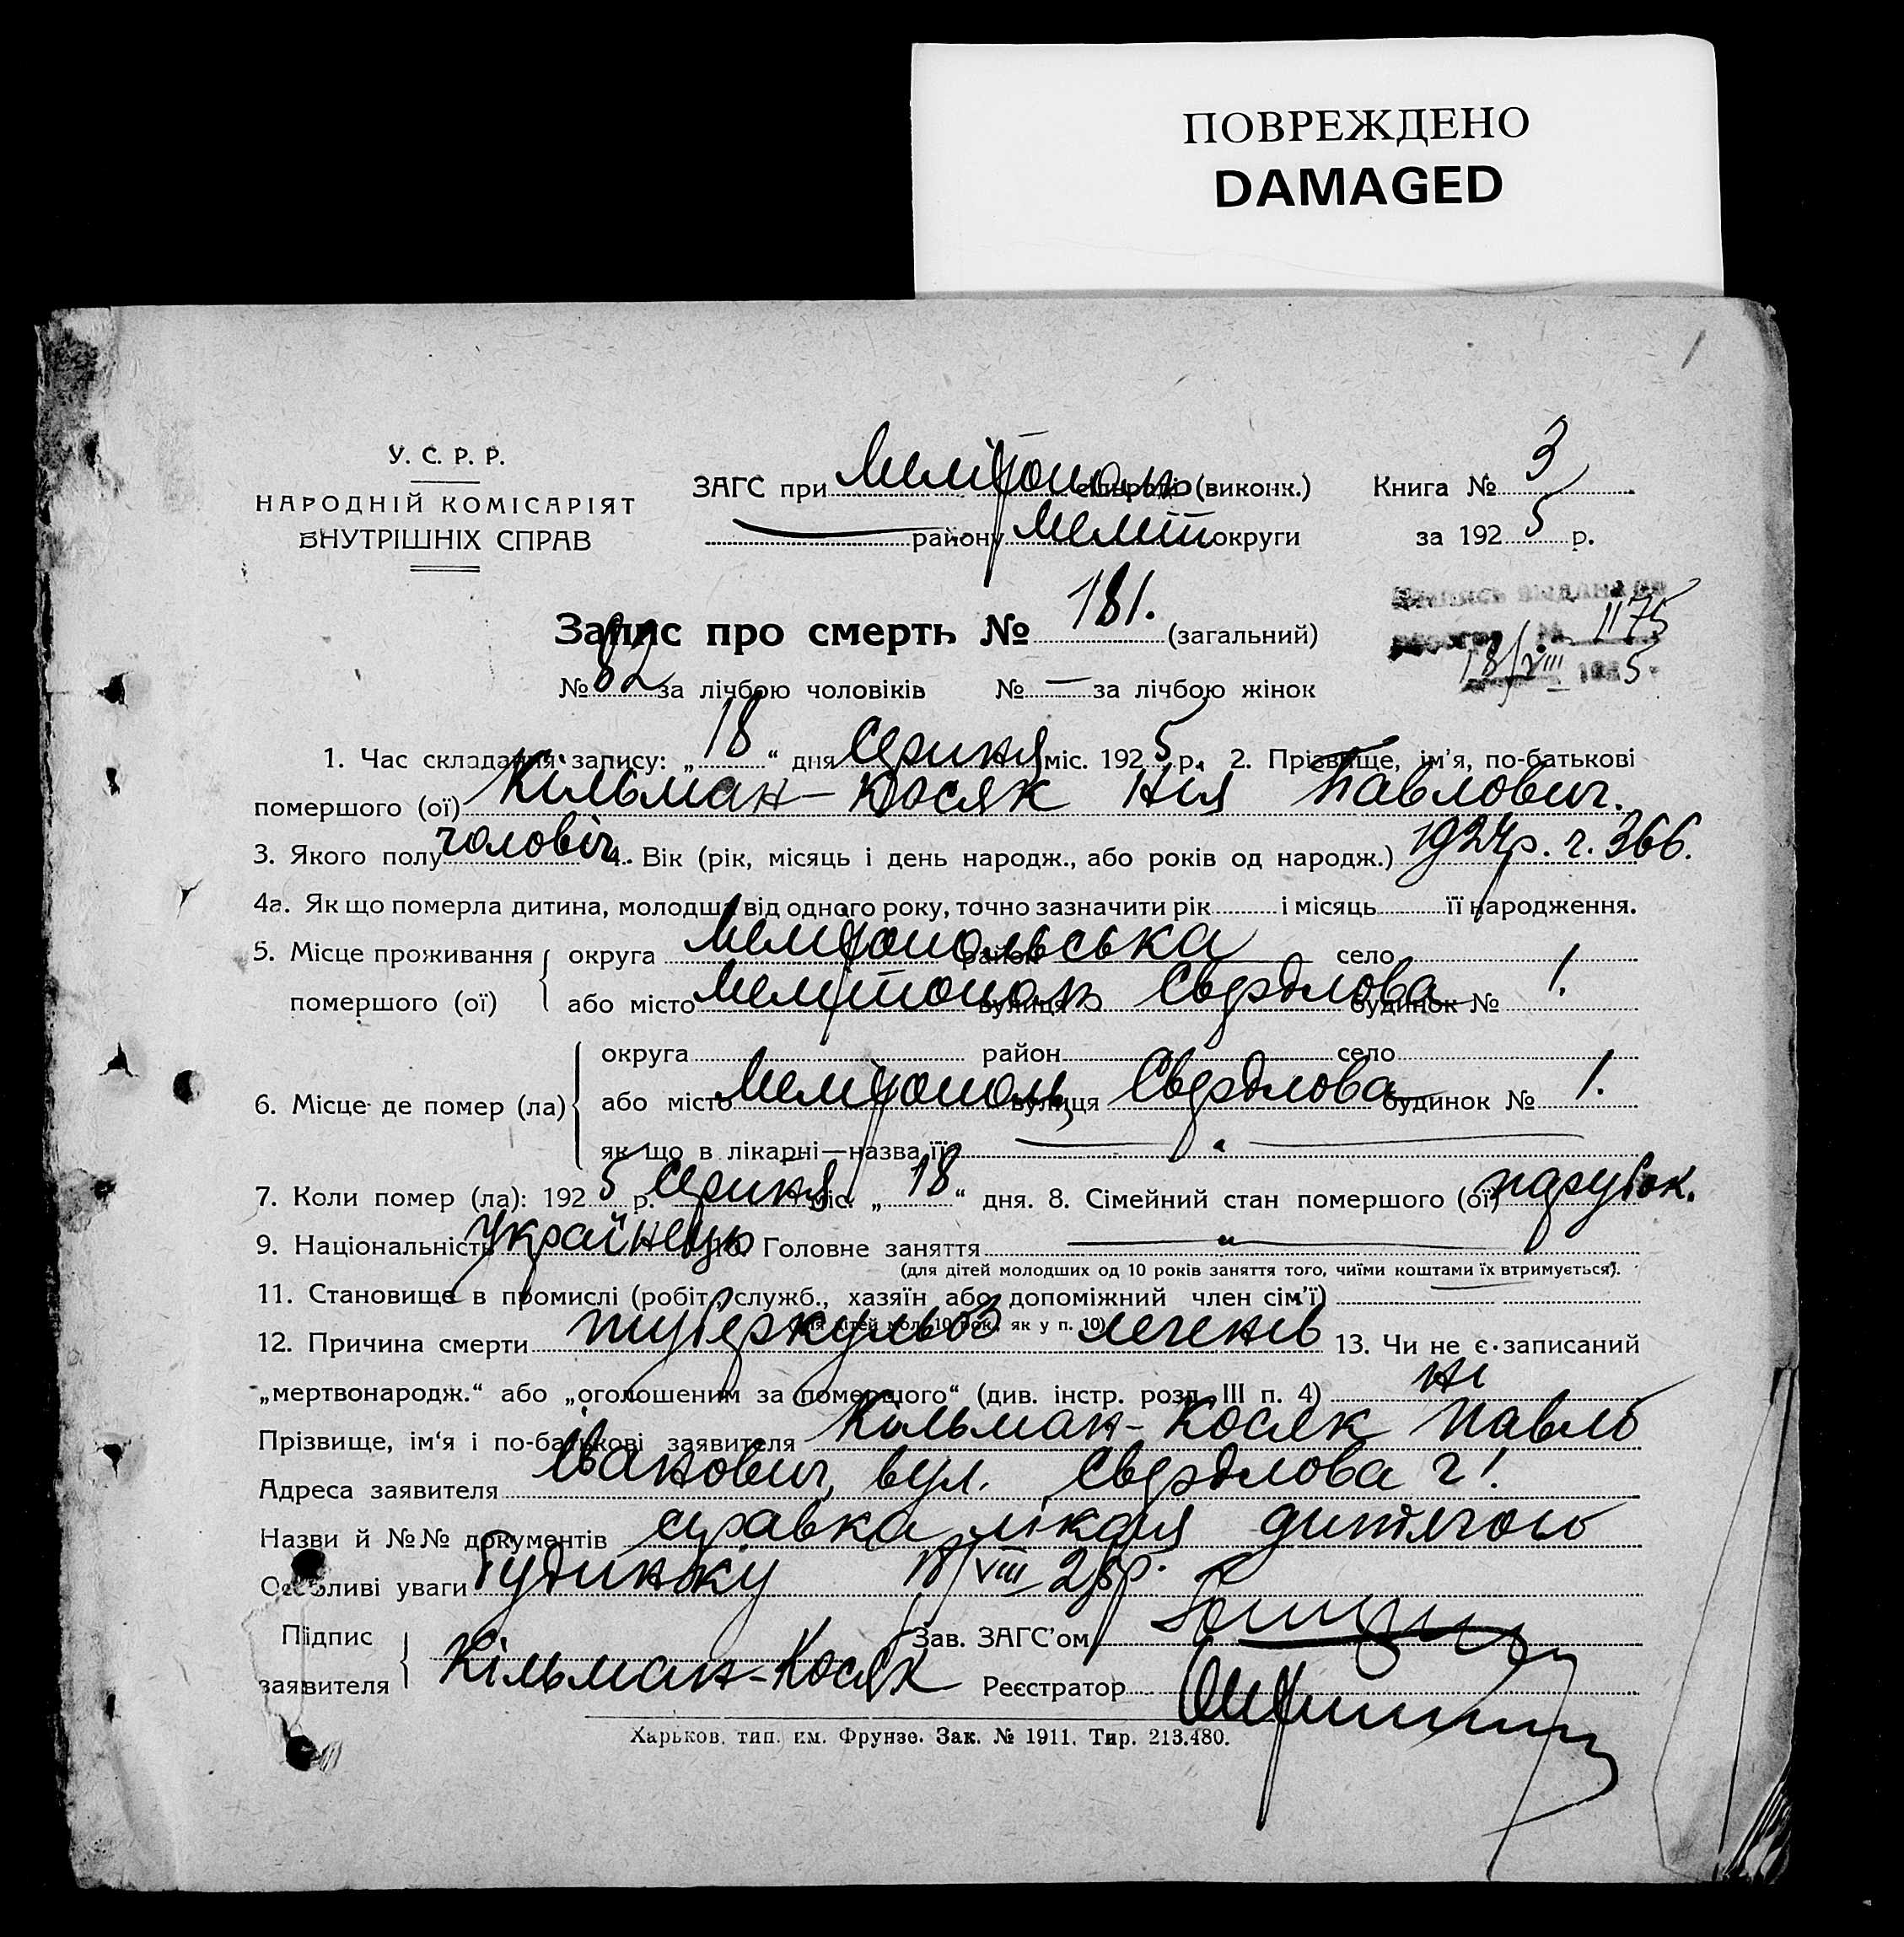 ПОВРЕЖДЕНО
DAMAGED
У. С. Р. Р.
НАРОДНІЙ КОМІСАРІЯТ
ВНУТРІШНІХ СПРАВ
ЗАГС при Мелітополь сільраді (виконк.)
району Меліт округи
Книга № 3
за 1925 р.
1175
18/VIII 1925
Запис про смерть № 181. (загальний)
№ 82 за лічбою чоловіків № — за лічбою жінок
1. Час складання запису: „18“ дня Серпня міс. 1925 р. 2. Прізвище, ім’я, по-батькові
помершого (ої) Кільман-Косяк Ілія Павлович.
3. Якого полу чоловіч. 4. Вік (рік, місяць і день народж., або років од народж.) 1924р. ч. 366.
4а. Як що померла дитина, молодша від одного року, точно зазначити рік і місяць її народження.
5. Місце проживання округа Мелітопольська район село
помершого (ої) або місто Мелітополь вулиця Свердлова будинок № 1.
6. Місце де помер (ла) округа район село
або місто Мелітополь вулиця Свердлова будинок № 1.
як що в лікарні—назва її — „ —
7. Коли помер (ла): 1925 р. Серпня міс. „18“ дня. 8. Сімейний стан помершого (ої) парубок.
9. Національність Українець 10. Головне заняття — „ —
(для дітей молодших од 10 років заняття того, чиїми коштами їх втримується).
11. Становище в промислі (робіт., служб., хазяїн або допоміжний член сім’ї) —
(для дітей мол. 10 рок. як у п. 10)
12. Причина смерти туберкульоз легенів 13. Чи не є записаний
„мертвонародж.“ або „оголошеним за помершого“ (див. інстр. розд. III п. 4) ні
Прізвище, ім‘я і по-батькові заявителя Кільман-Косяк Павло
Адреса заявителя Іванович, вул. Свердлова ч 1.
Назви й №№ документів справка лікаря дитячого
Особливі уваги будинку 18/VIII 25р.
Підпис
заявителя Кільман-Косяк
Зав. ЗАГС’ом
Реєстратор
Харьков, тип. им. Фрунзе. Зак. № 1911. Тир. 213.480.